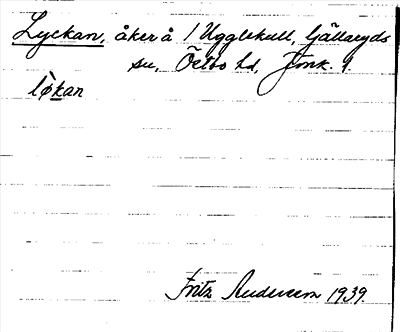 Lyckan, åker å 1 Ugglekull, Gällaryds
sn, Östbo hd, Jönk. l.
lø̀kan
Fritz Anderson 1939